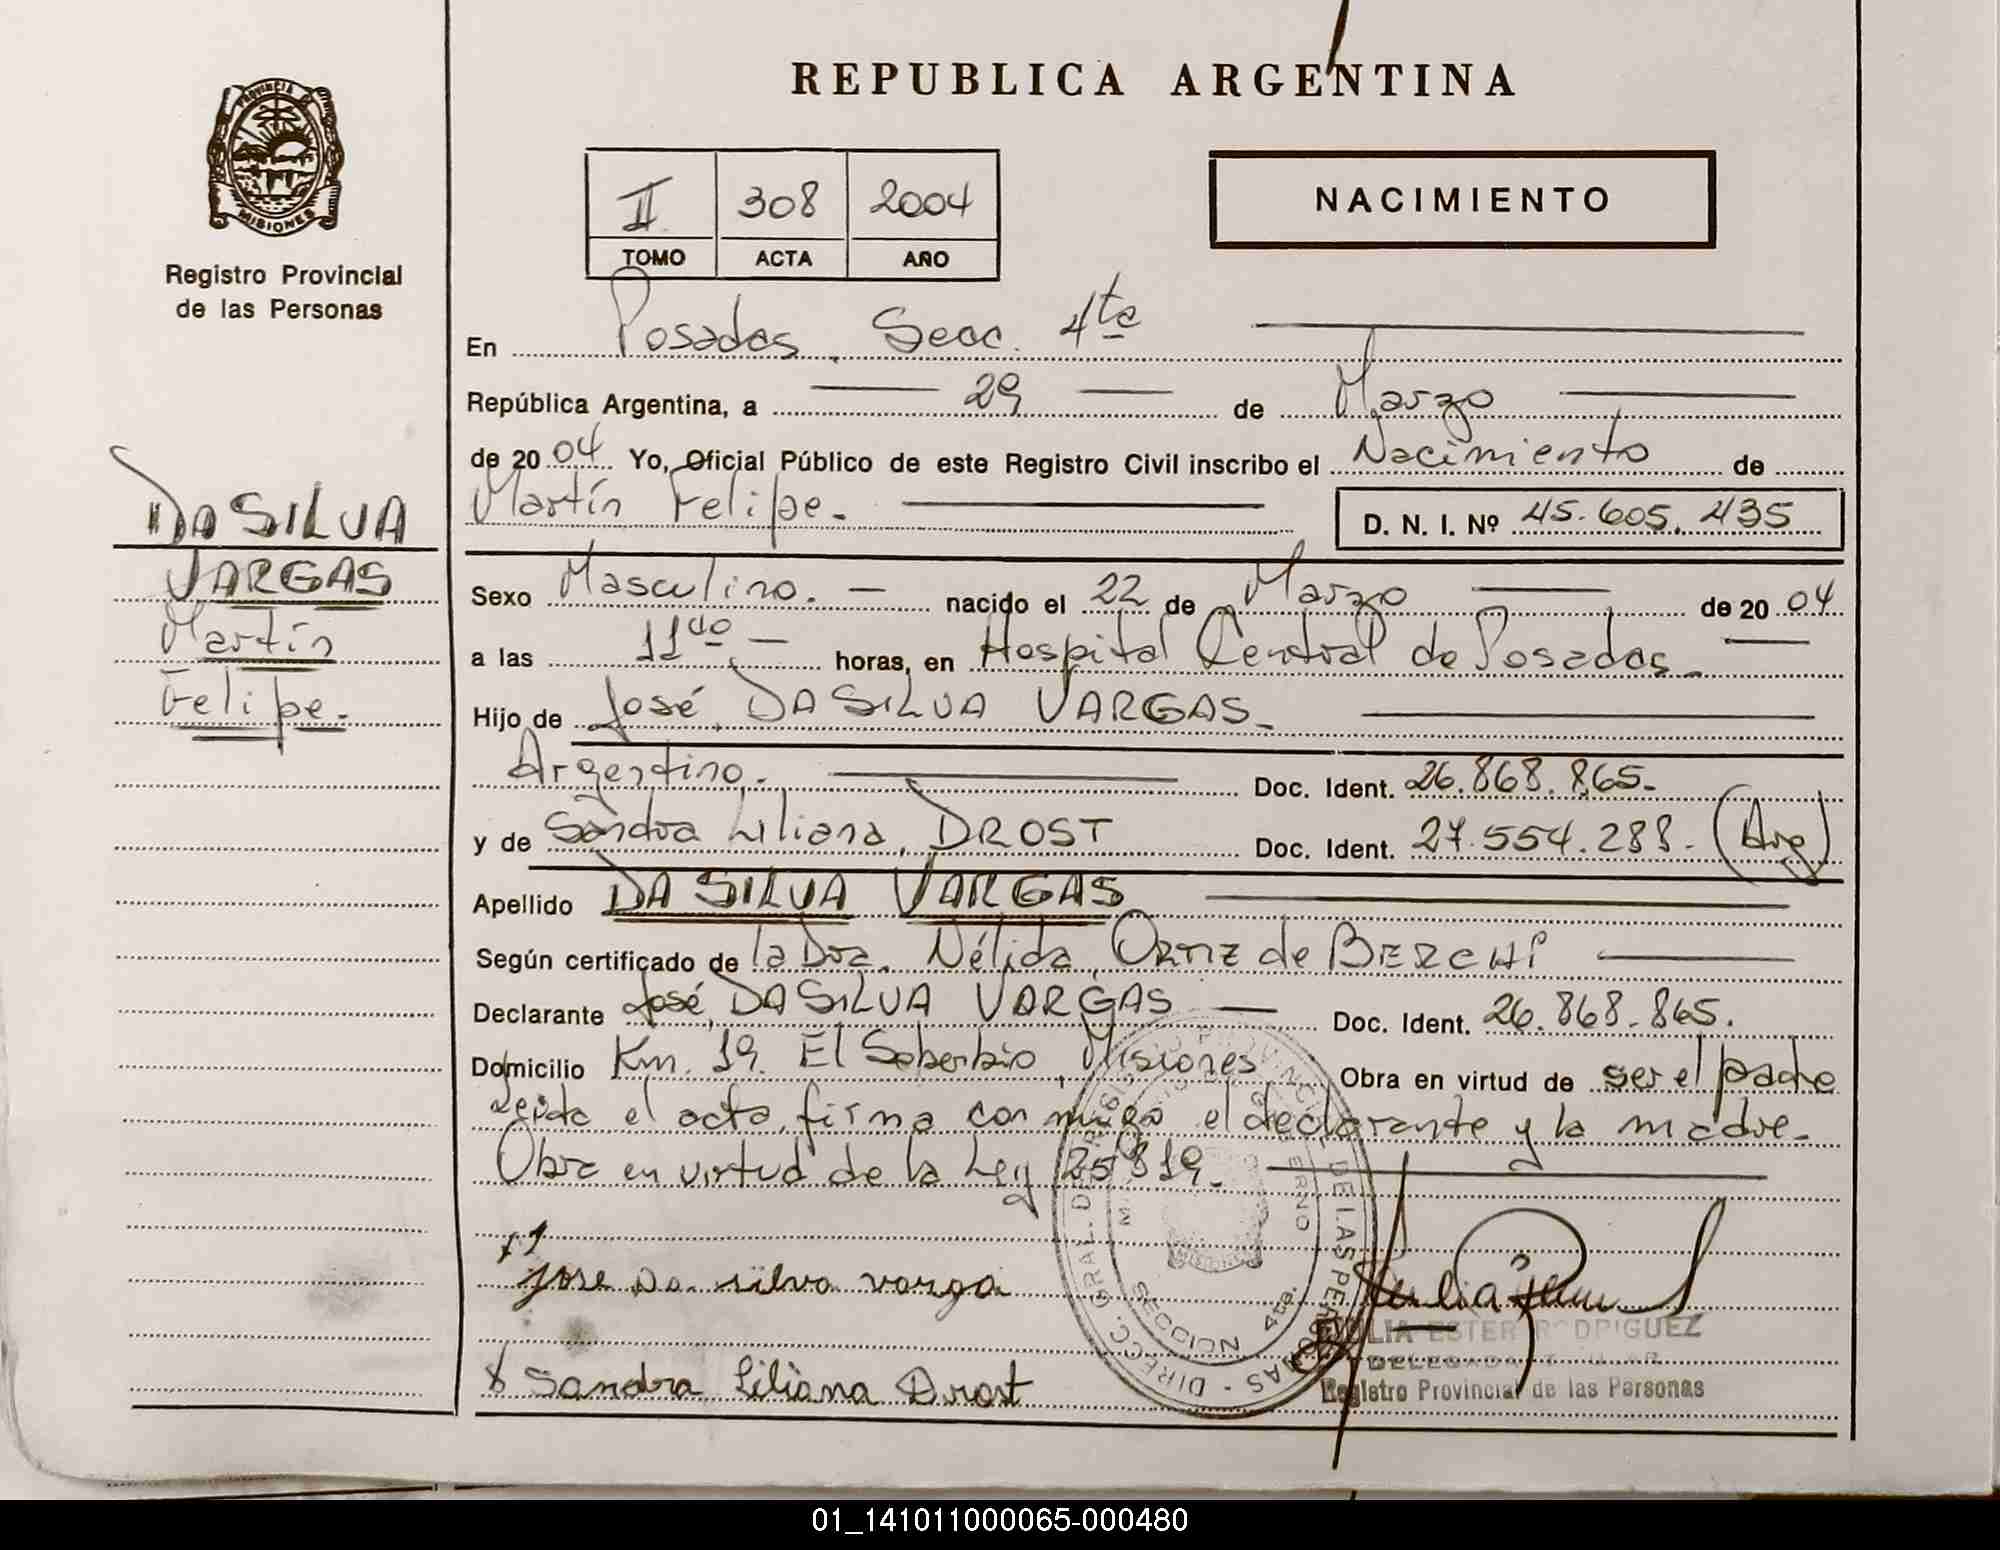 PROVINCIA DE
MISIONES
Registro Provincial
de las Personas
DA SILVA
VARGAS
Martín
Felipe.
REPUBLICA ARGENTINA
II 308 2004
TOMO ACTA AÑO
NACIMIENTO
En Posadas, Secc. 4ta
República Argentina, a 29 de Marzo
de 2004 Yo, Oficial Público de este Registro Civil inscribo el Nacimiento de
Martín Felipe.
D. N. I. Nº 45.605.435
Sexo Masculino. nacido el 22 de Marzo de 2004
a las 11 horas, en Hospital Central de Posadas.
Hijo de José, DA SILVA VARGAS.
Argentino. Doc. Ident. 26.868.865.
y de Sandra Liliana, DROST Doc. Ident. 27.554.288. (Arg)
Apellido DA SILVA VARGAS
Según certificado de la Dra. Nélida, ORTIZ de BERCHI
Declarante José, DA SILVA VARGAS Doc. Ident. 26.868.865.
Domicilio Km. 19. El Soberbio, Misiones Obra en virtud de ser el padre
Leída el acta, firma con migo el declarante y la madre.
Obra en virtud de la Ley 25819.
Jose Da silva varga
Sandra Liliana Drost
DIRECC. GRAL. DEL REGISTRO PROVINCIAL DE LAS PERSONAS
SECCION 4ta.
JULIA ESTER RODRIGUEZ
DELEGADA TITULAR
Registro Provincial de las Personas
01_141011000065-000480